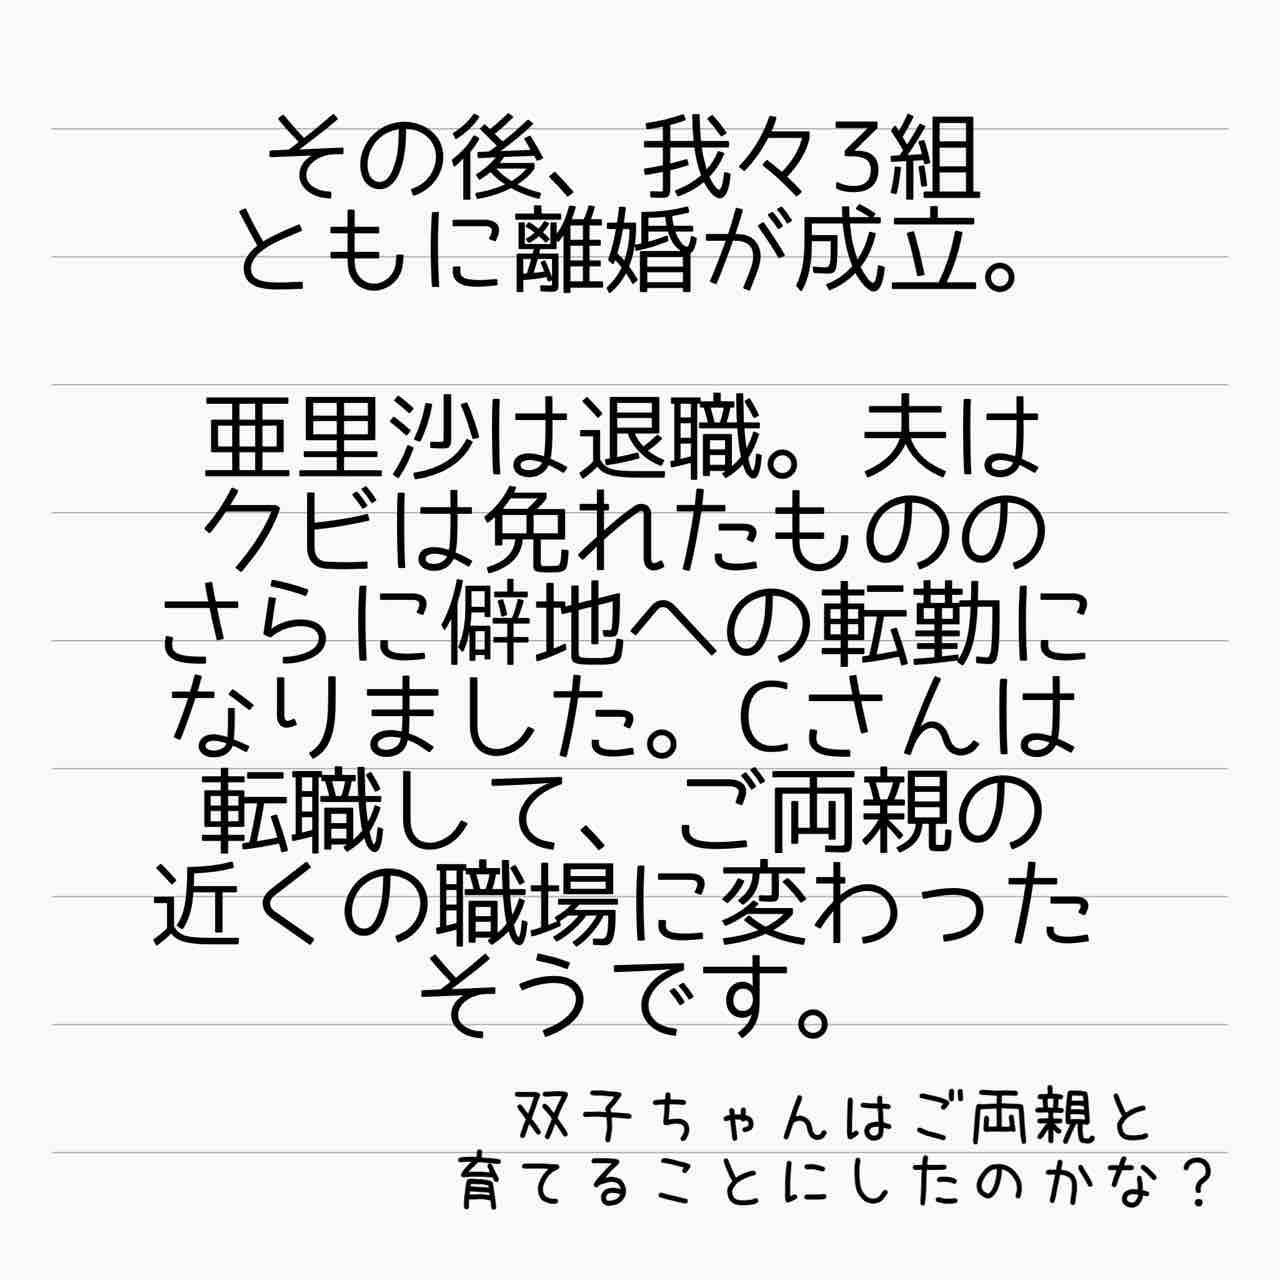 その後、我々3組
ともに離婚が成立。
亜里沙は退職。夫は
クビは免れたものの
さらに僻地への転勤に
なりました。Cさんは
転職して、ご両親の
近くの職場に変わった
そうです。
双子ちゃんはご両親と
育てることにしたのかな？